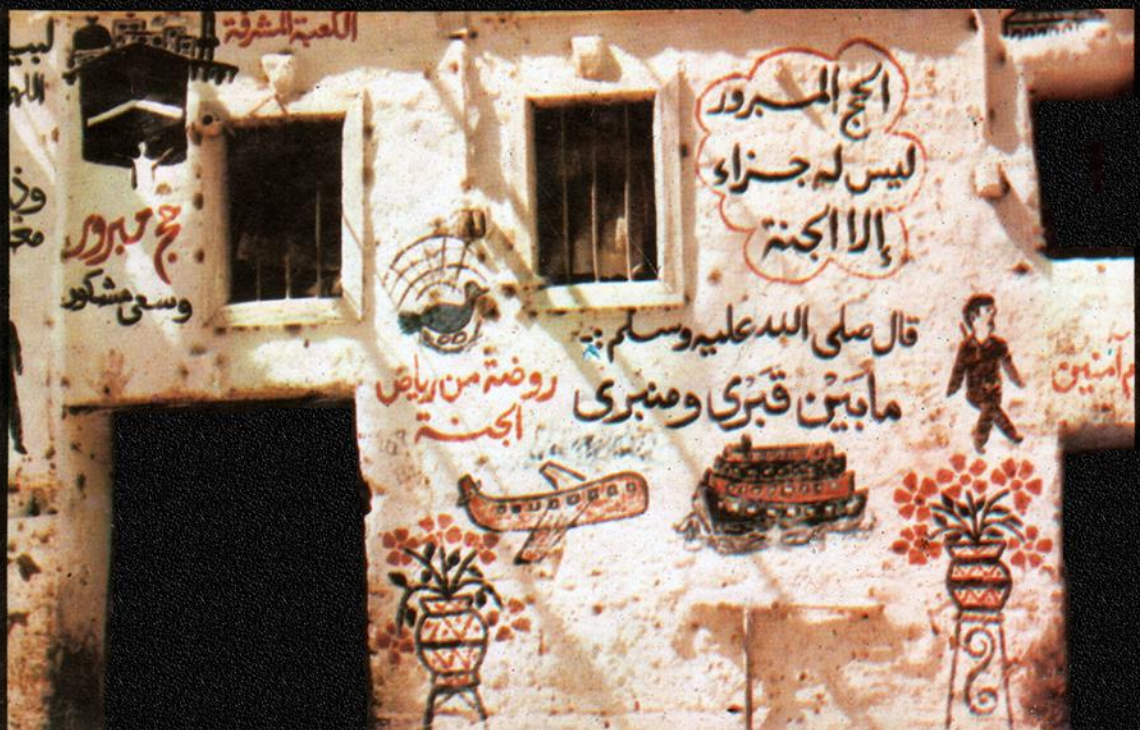 الكعبة المشرفة
الحج المبرور
ليس له جزاء
إلا الجنة
حج مبرور
وسعى مشكور
قال صلى الله عليه وسلم :-
مابَيْن قَبْرى ومنبرى
روضة من رياض
الجنة
آمنين